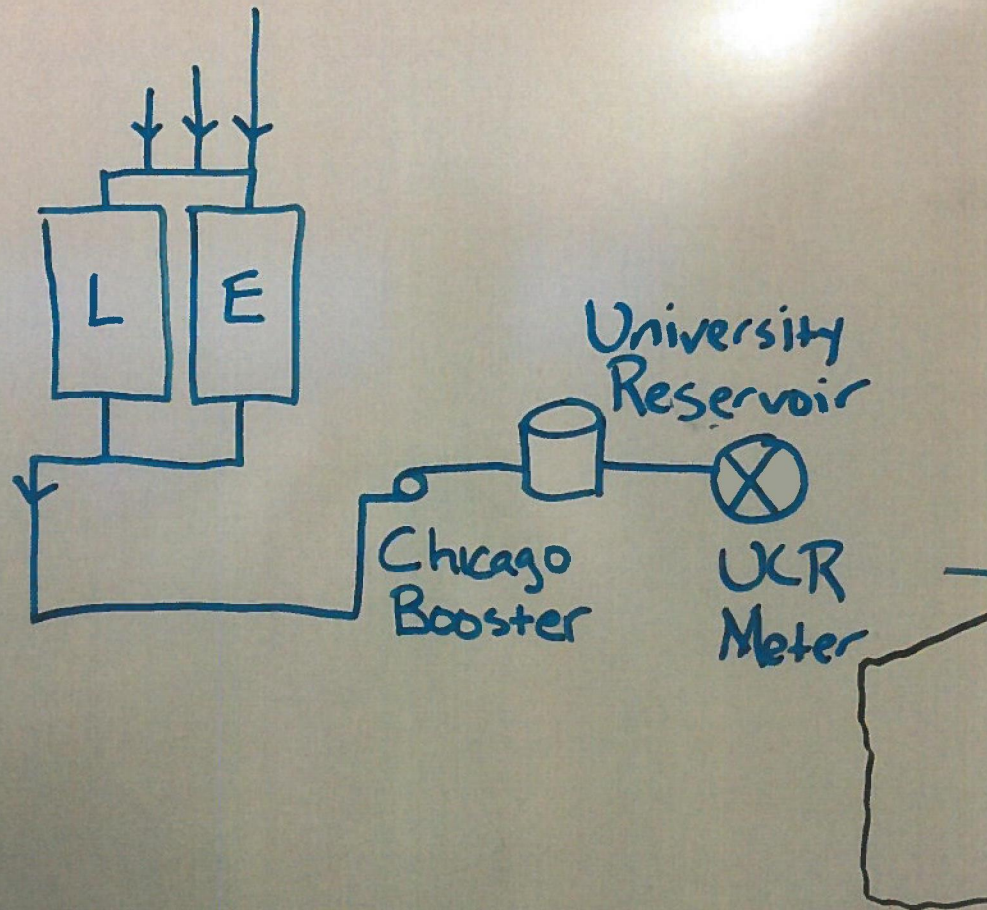 L
E
University
Reservoir
Chicago
Booster
UCR
Meter